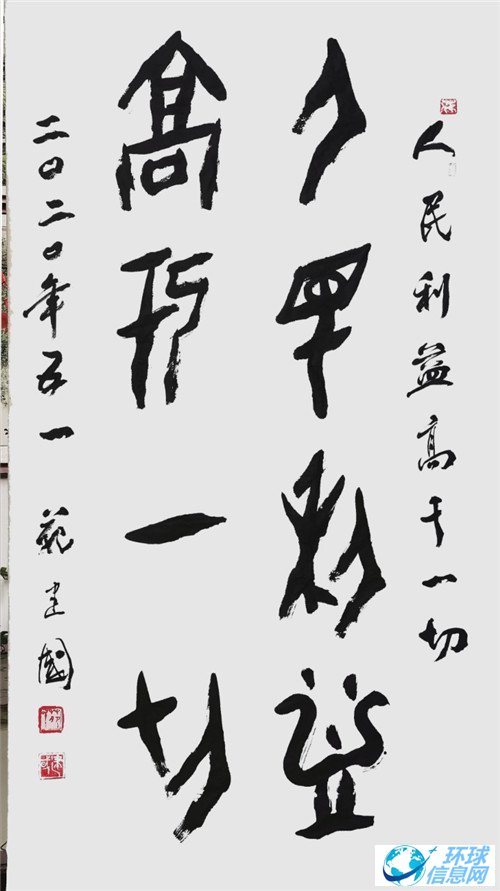 人民利益高于一切
人民利益
高于一切
二〇二〇年五一 建國
环球
信息网